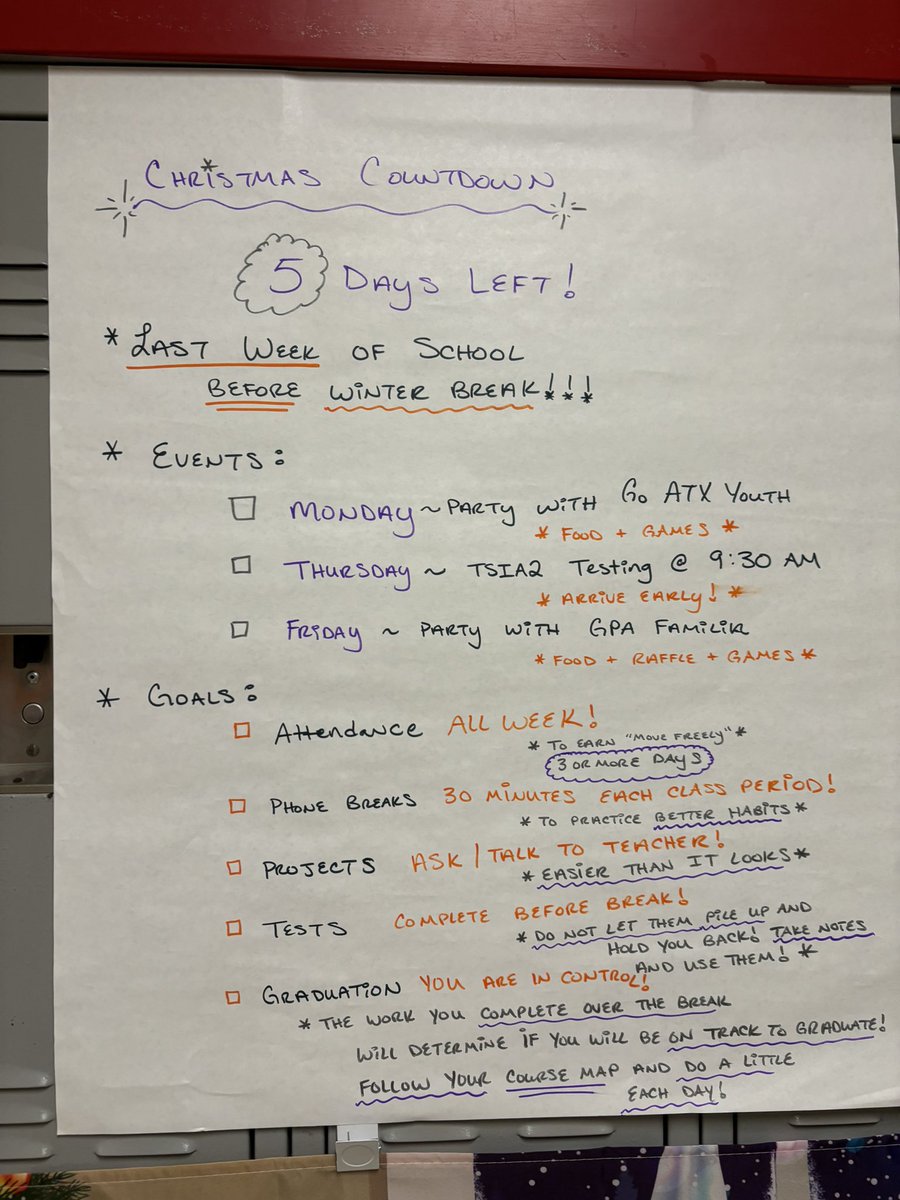 CHRISTMAS COUNTDOWN
5 DAYS LEFT!
* LAST WEEK OF SCHOOL
BEFORE WINTER BREAK!!!
* EVENTS:
MONDAY ~ PARTY WITH GO ATX YOUTH
* FOOD + GAMES *
THURSDAY ~ TSIA2 Testing @ 9:30 AM
* ARRIVE EARLY! *
FRIDAY ~ PARTY WITH GPA FAMILIA
* FOOD + RAFFLE + GAMES *
* GOALS:
Attendance ALL WEEK!
* TO EARN "MOVE FREELY" *
3 OR MORE DAYS
PHONE BREAKS 30 MINUTES EACH CLASS PERIOD!
* TO PRACTICE BETTER HABITS *
PROJECTS ASK / TALK TO TEACHER!
* EASIER THAN IT LOOKS *
TESTS COMPLETE BEFORE BREAK!
* DO NOT LET THEM PILE UP AND
HOLD YOU BACK! TAKE NOTES
AND USE THEM! *
GRADUATION YOU ARE IN CONTROL!
* THE WORK YOU COMPLETE OVER THE BREAK
WILL DETERMINE IF YOU WILL BE ON TRACK TO GRADUATE!
FOLLOW YOUR COURSE MAP AND DO A LITTLE
EACH DAY!